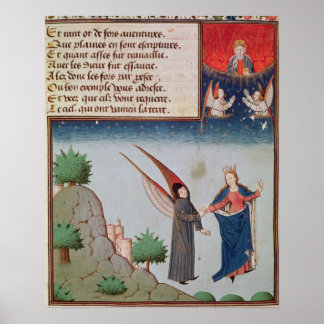 Et tant ot de fors aventures
Que plaines en sont escriptures
Et quant asses fut travaillie
Avec les dieux fut essaucie
Ales dont les fors par
Ou bon exemple vous adresse
Et veez que cil vont requerre
Le ciel qui ont vaincu la terre